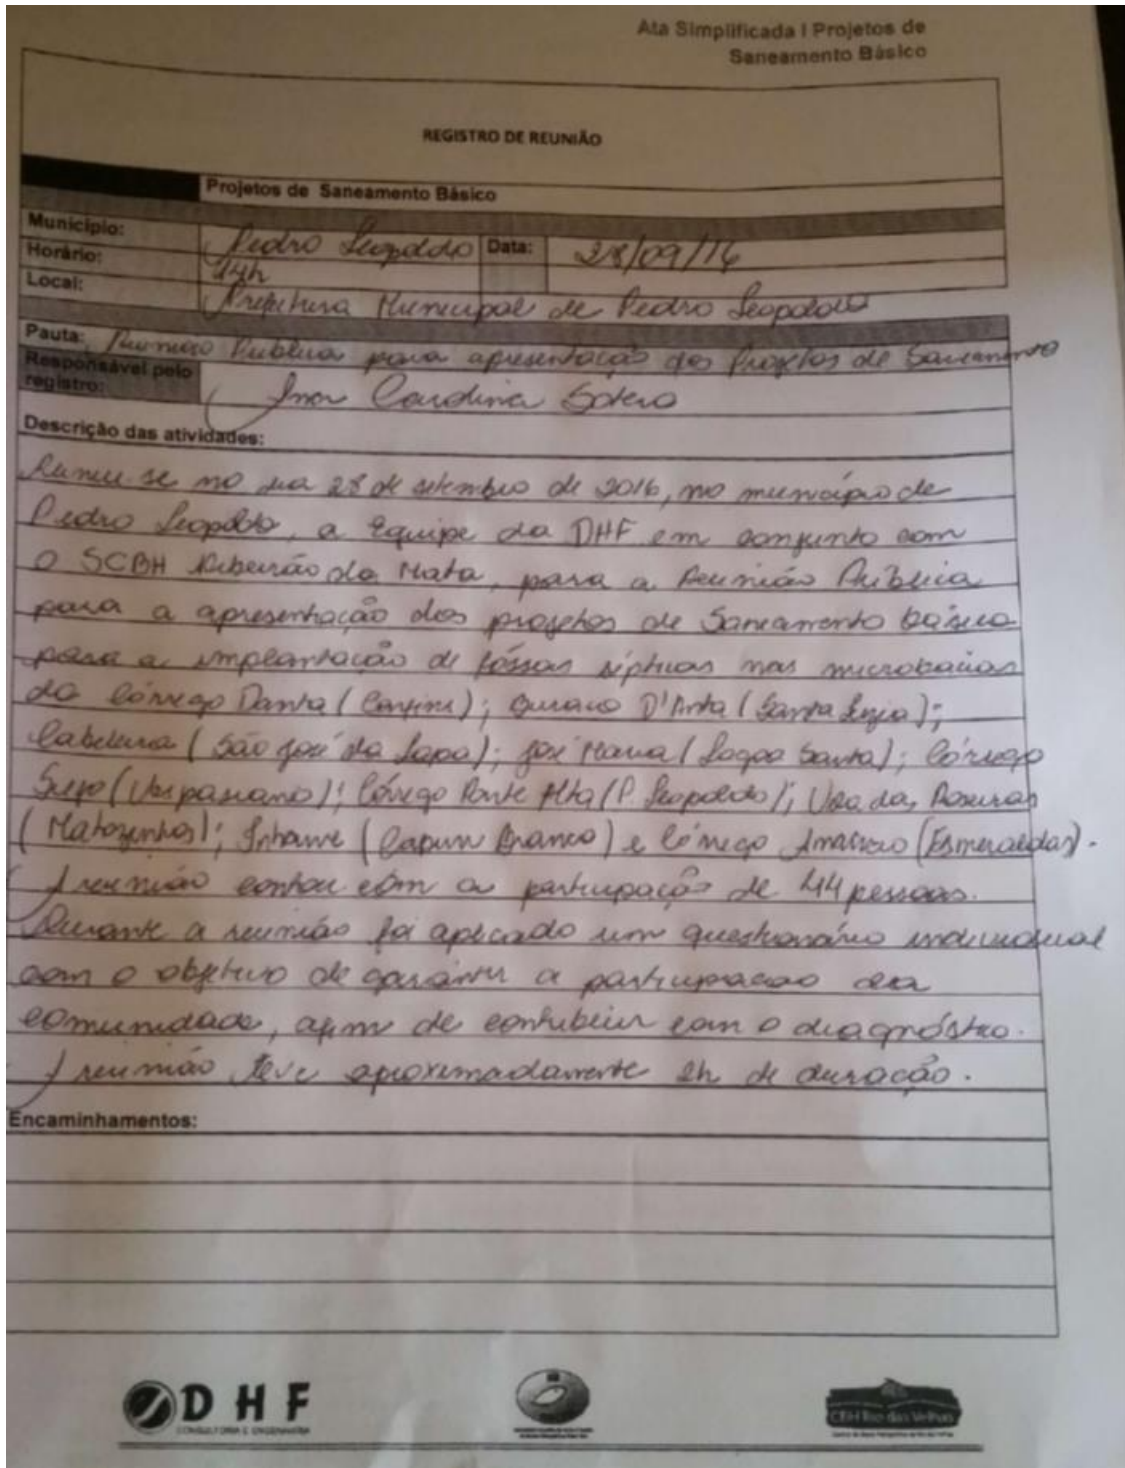 Ata Simplificada I Projetos de
Saneamento Básico
REGISTRO DE REUNIÃO
Projetos de Saneamento Básico
Município: Pedro Leopoldo Data: 28/09/16
Horário: 14h
Local: Prefeitura Municipal de Pedro Leopoldo
Pauta: Reunião Publica para apresentação dos Projetos de Saneamento
Responsável pelo
registro: Ana Carolina Sotero
Descrição das atividades:
Reuniu-se no dia 28 de setembro de 2016, no município de
Pedro Leopoldo, a equipe da DHF em conjunto com
o SCBH Ribeirão da Mata, para a Reunião Pública
para a apresentação dos projetos de Saneamento básico
para a implantação de fóssas sépticas nas microbacias
do Córrego Danta (Confins); D'Anta (Santa Luzia);
(São José da Lapa); José Maria (Lagoa Santa); Córrego
Sujo (Vespasiano); Córrego Ponte Alta (P. Leopoldo);
(Matozinhos); Inhame (Capim Branco) e Córrego (Esmeraldas).
A reunião contou com a participação de 44 pessoas.
Durante a reunião foi aplicado um questionário individual
com o objetivo de garantir a participacao da
comunidade, afim de contribuir com o diagnóstico.
A reunião teve aproximadamente 2h de duração.
Encaminhamentos:
DHF
CONSULTORIA E ENGENHARIA
CBH Rio das Velhas